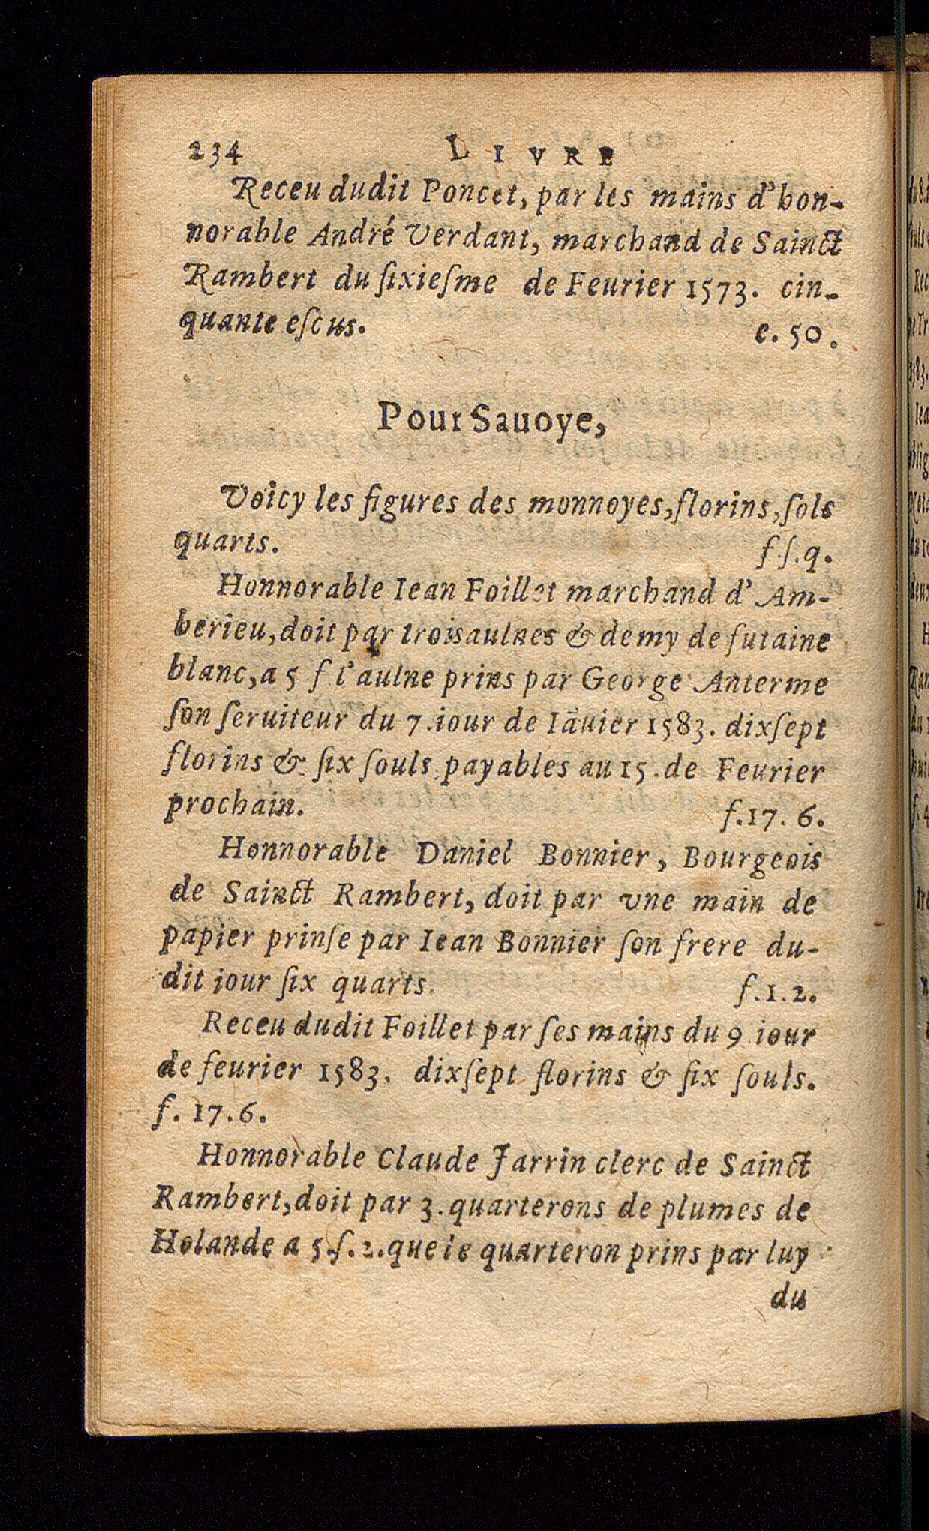 234 LIVRE
Receu dudit Poncet, par les mains d'hon-
norable André Verdant, marchand de Sainct
Rambert du sixiesme de Feurier 1573. cin-
quante escus. e. 50.
Pour Sauoye,
Voicy les figures des monnoyes, florins, sols
quarts. f ſ. q.
Honnorable Iean Foillet marchand d'Am-
berieu, doit par trois aulnes & demy de futaine
blanc, a 5 f l'aulne prins par George Anterme
ſon ſeruiteur du 7. iour de Iāuier 1583. dixſept
florins & ſix ſouls payables au 15. de Feurier
prochain. f. 17. 6.
Honnorable Daniel Bonnier, Bourgeois
de Sainct Rambert, doit par vne main de
papier prinſe par Iean Bonnier ſon frere du-
dit iour ſix quarts. f. 1. 2.
Receu dudit Foillet par ſes mains du 9 iour
de feurier 1583. dixſept florins & ſix ſouls.
f. 17. 6.
Honnorable Claude Jarrin clerc de Sainct
Rambert, doit par 3. quarterons de plumes de
Holande a 5. ſ. 2. que le quarteron prins par luy
du